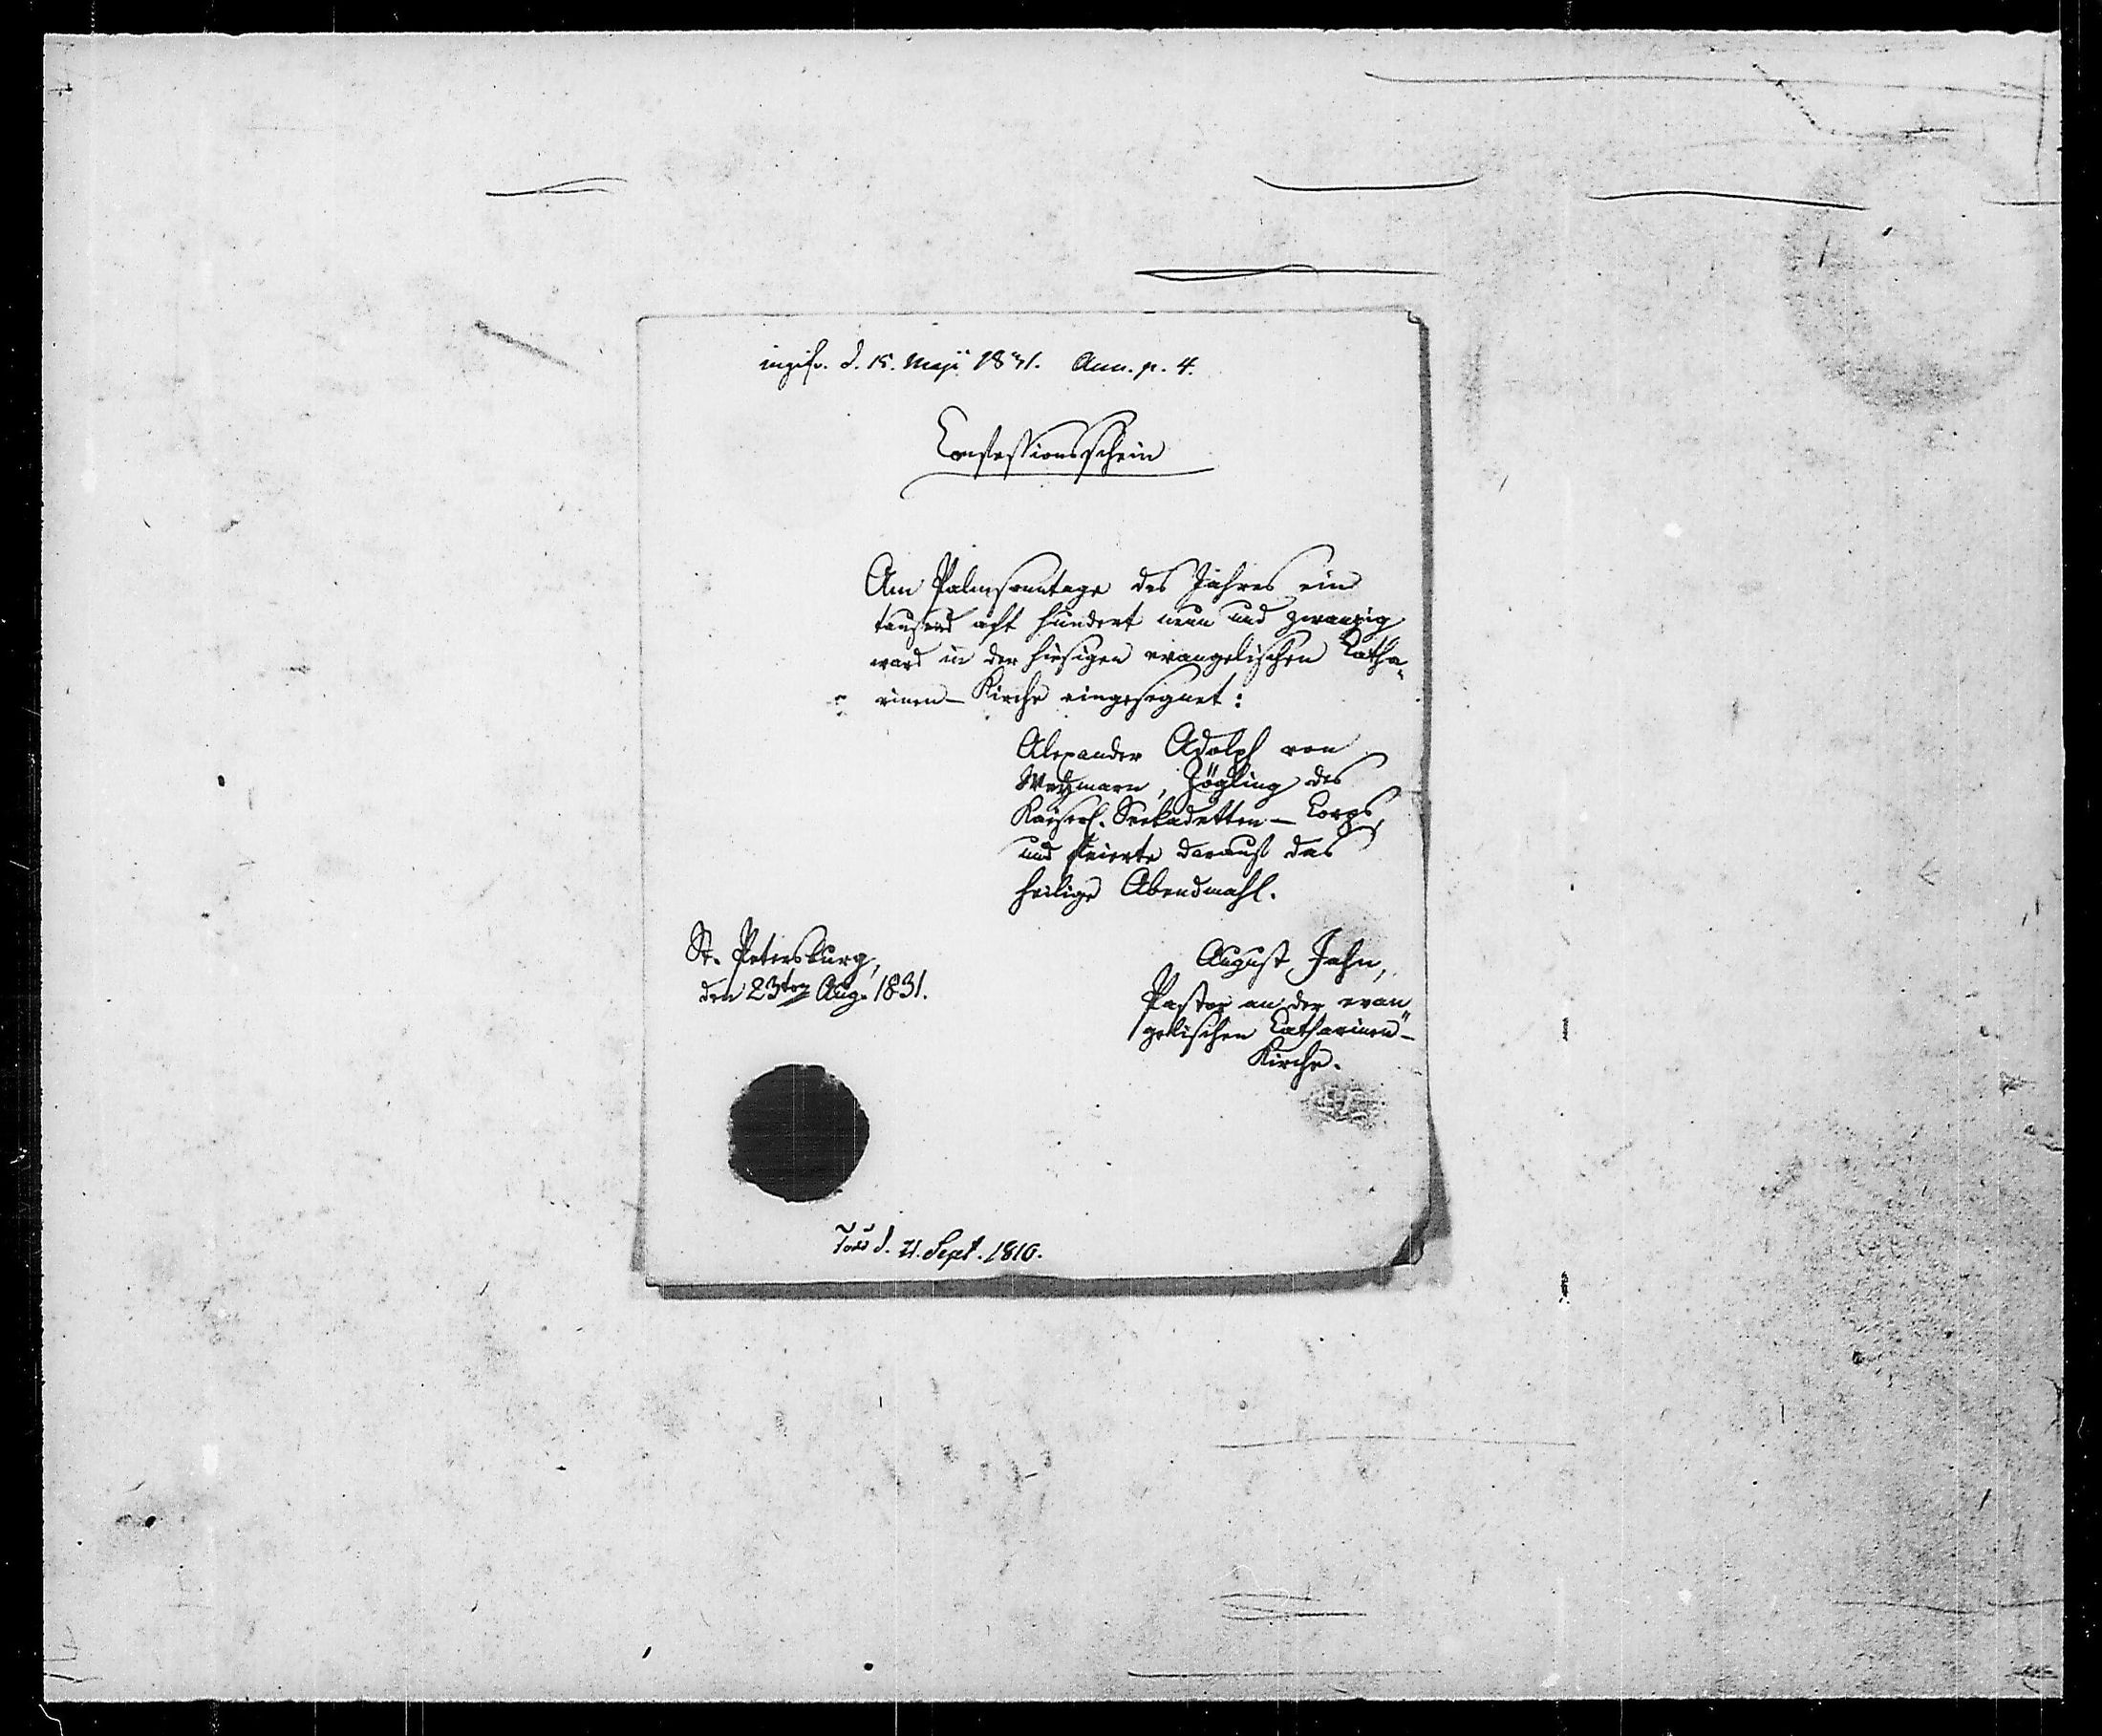 d. 15. Maji 1831. Ann. p. 4.
Confessionsschein
Am Palmsonntage des Jahres ein
tausend acht hundert neun und zwanzig
ward in der hiesigen evangelischen Catha„
rinen-Kirche eingesegnet:
Alexander Adolph von
Weymarn, Zögling des
Kaiserl. Seekadetten-Corps,
und feierte darauf das
heilige Abendmahl.
St. Petersburg,
den 23ten Aug. 1831.
August Jahn,
Pastor an der evan„
gelischen Catharinen-
Kirche.
d. 21. Sept. 1810.